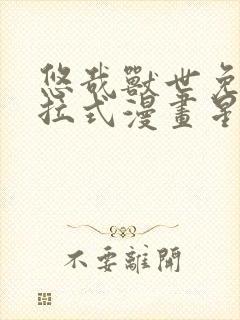 悠哉獸世免
拉式漫畫星
不要離開